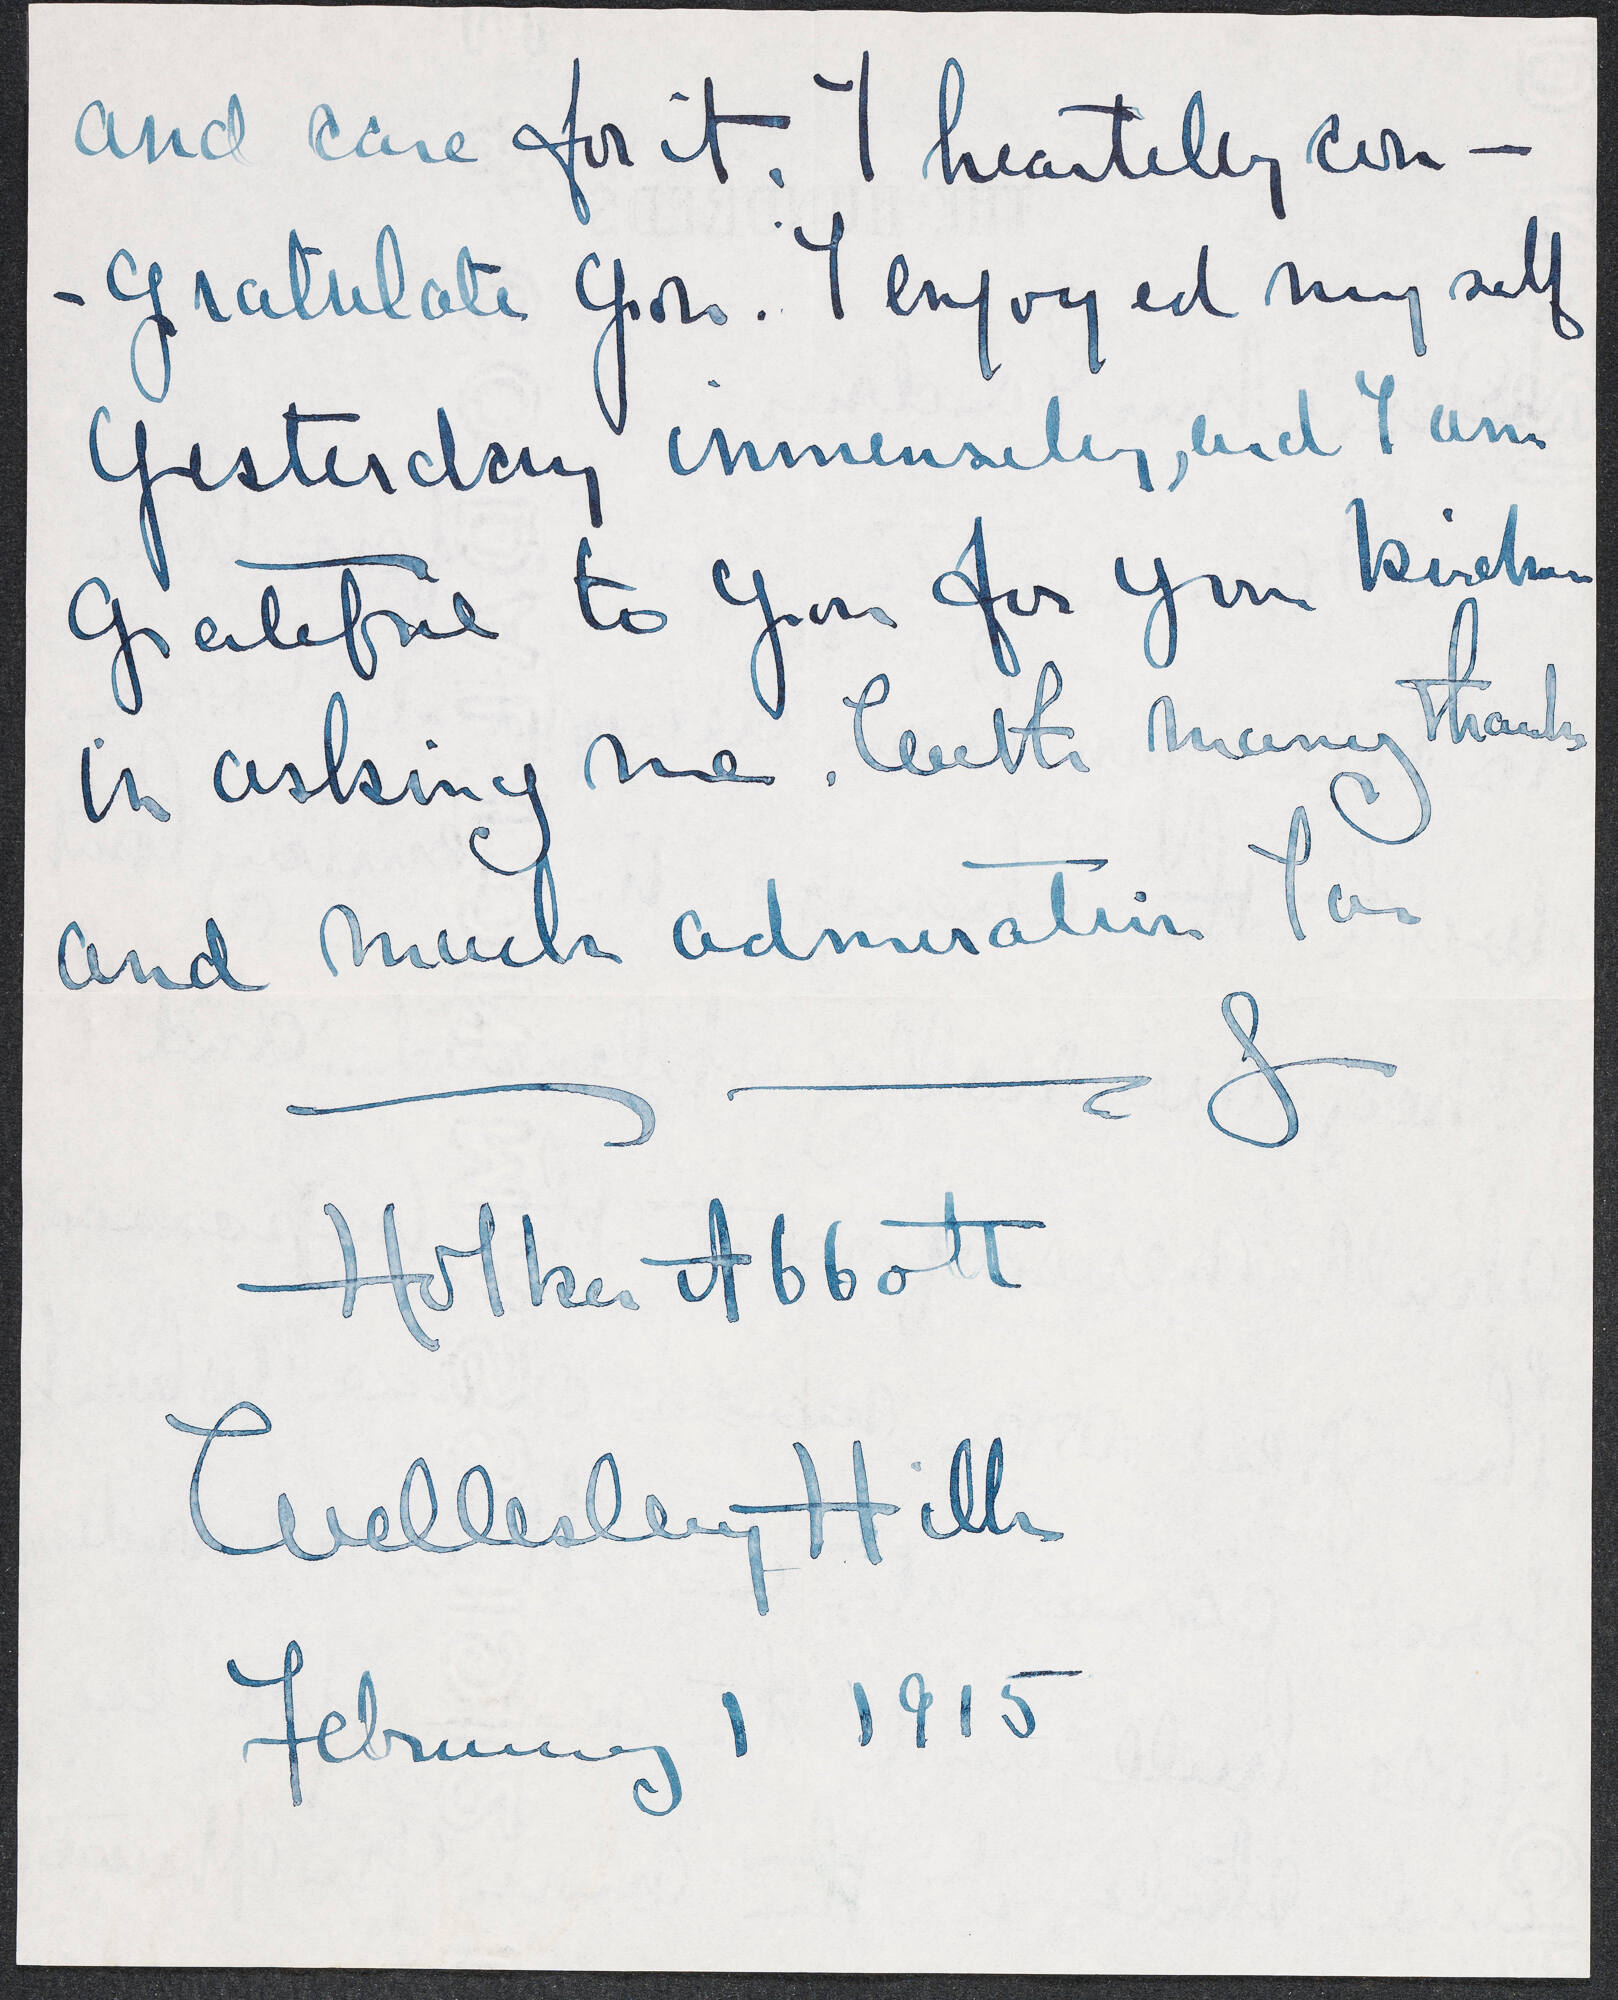 and care for it. I heartily con-
-gratulate you. I enjoyed myself
yesterday immensely, and I am
grateful to you for your kindness
in asking me. With many thanks
and much admiration I am
Holker Abbott
Wellesley Hills
February 1 1915